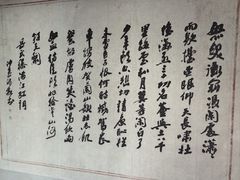 怒髮衝冠憑闌處瀟
雨歇擡望眼仰天長嘯壯
懷激烈三十功名塵與土八千
里路雲和月莫等閒白了
少年頭空悲切靖康恥猶
未雪臣子恨何時滅駕長
車踏破賀蘭山缺壯志飢
餐胡虜肉笑談渴飲匈
奴血待從頭收拾舊山河
朝天闕
岳武穆滿江紅詞